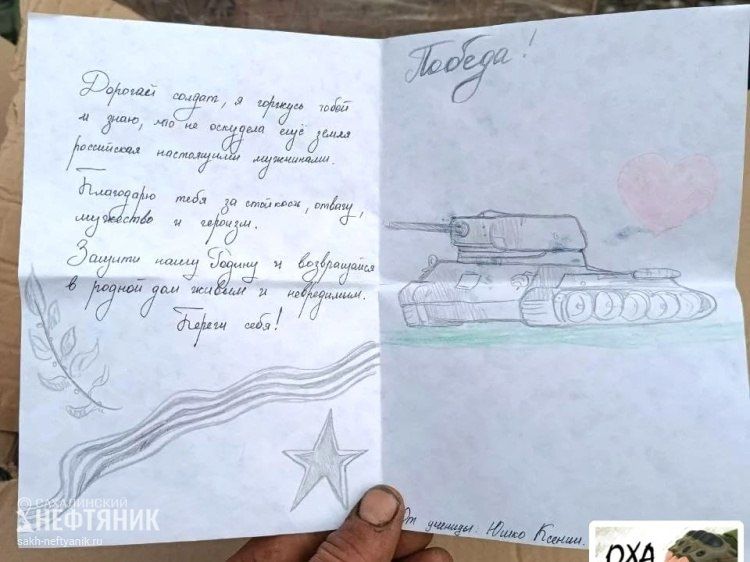 Дорогой солдат, я горжусь тобой
и знаю, что не оскудела ещё земля
российская настоящими мужчинами.
Благодарю тебя за стойкость, отвагу,
мужество и героизм.
Защити нашу Родину и возвращайся
в родной дом живым и невредимым.
Береги себя!
Победа!
От ученицы: Юшко Ксении.
САХАЛИНСКИЙ
НЕФТЯНИК
sakh-neftyanik.ru
ОХА